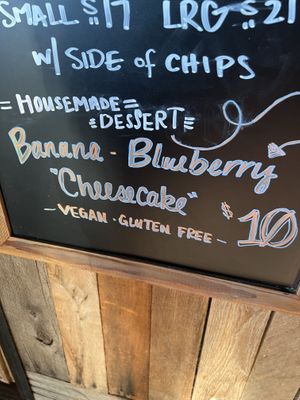 SMALL $17 LRG $21
w/ SIDE of CHIPS
= HOUSEMADE =
= DESSERT =
Banana - Blueberry
"Cheesecake"
- VEGAN · GLUTEN FREE - $10